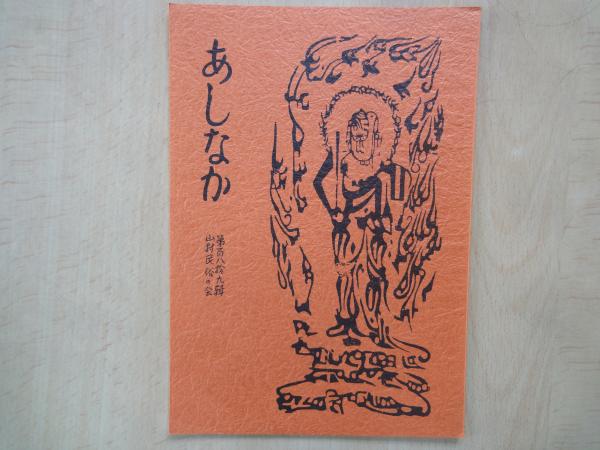 あしなか
第百八拾九輯
山村民俗の会